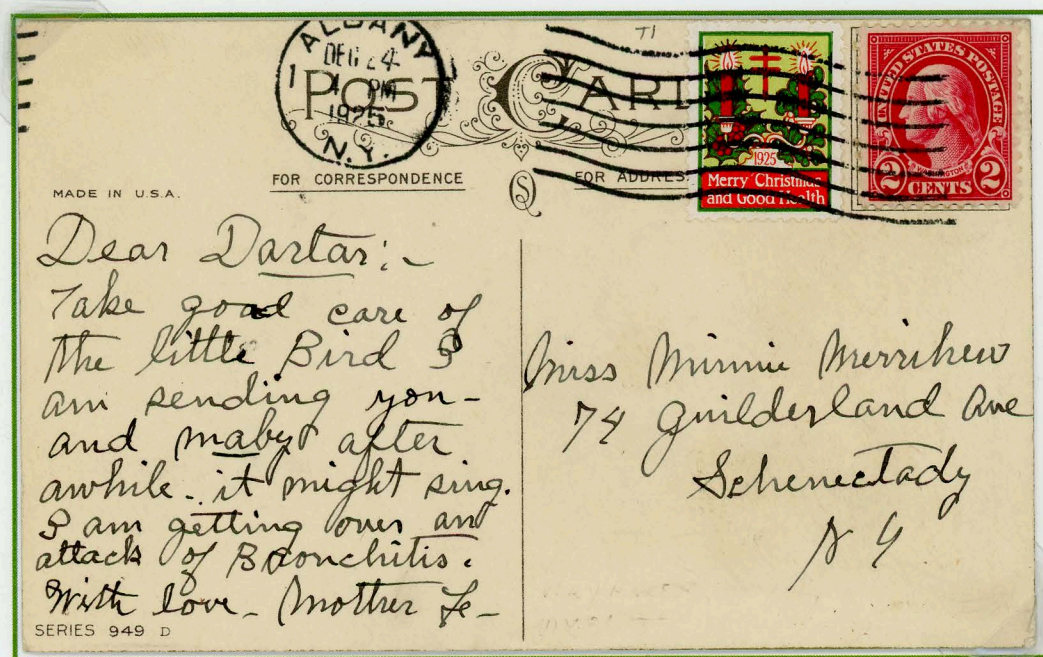 ALBANY
DEC 24
1 4 PM
1925
N.Y.
T1
POST CARD
FOR CORRESPONDENCE
FOR ADDRES
MADE IN U.S.A.
S
1925
Merry Christmas
and Good Health
UNITED STATES POSTAGE
WASHINGTON
2 CENTS 2
Dear Dartar:-
Take good care of
the little Bird I
am sending you-
and maby after
awhile. it might sing.
I am getting over an
attack of Bronchitis.
With love - Mother Fe-
SERIES 949 D
Miss Minnie Merrihew
74 Guilderland Ave
Schenectady
N Y